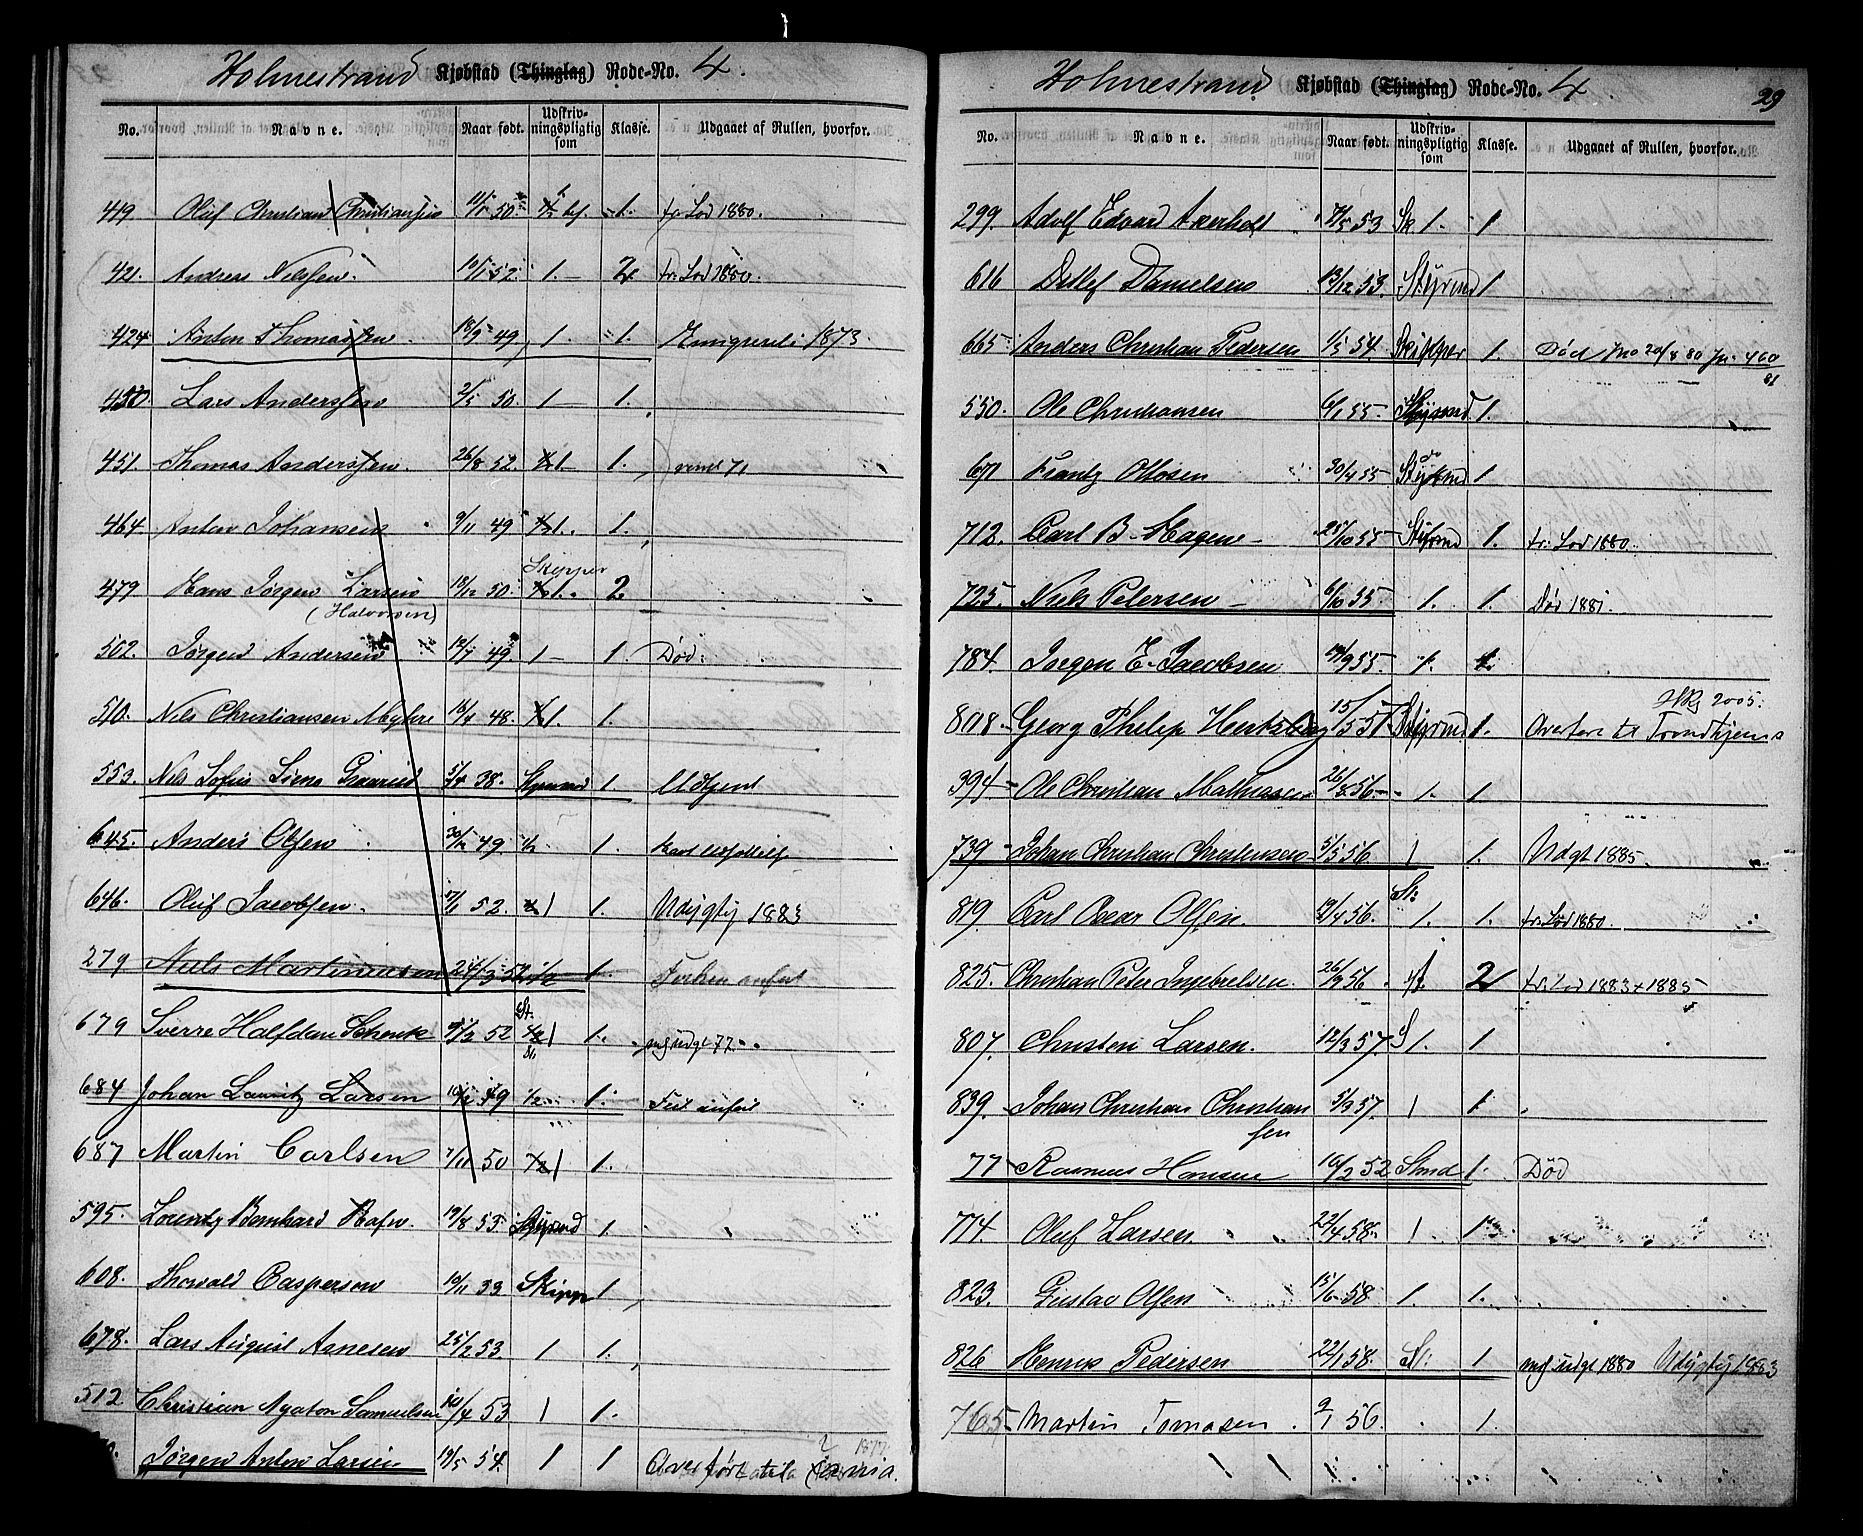 Holmestrand Kjøbstad (Thinglag) Rode-No. 4.
No. Navne. Naar født. Udskriv-ningspligtig som Klasse. Udgaaet af Rullen, hvorfor.
419 Oluf Christian Christiansen 50 1. fr. Lod 1880.
421. Andreas Nilssen. 10/1 52. 1. 2. fr. Lod 1880.
424 Anton Thomassen 18/9 49 1. 1. 1873.
450 Lars Anderssen 2/5 50. 1 1.
451. Thomas Anderssen. 26/8 52. 1 1.
464. Anton Johansen 9/11 49 1. 1.
Skipper
479 Hans Jørgen Larsen 18/12 50. 1. 2
(Halvorsen)
502. Jørgen Andersen 12/7 49. 1 1. Død.
510. Nils Christiansen Myhre 48. 1. 1.
553. Nils Sofus 38. Styrmd 1. Udtjent
645. Anders Olsen 30/12 49. 1/2 1.
646. Oluf Jacobsen. 17/1 52. 1 1. Udygtig 1883
279 Niels Martiniussen 24/3 52 1/2 1. Feilen anført
679 Sverre Halfdan Schenck 52 St. 1 1. udgt 77.
684 Johan Lauritz Larsen 49 1/2 1. Feil anført
687 Martin Carlsen 7/11 50 1 1.
595. Lorentz Bernhard Hafn. 19/8 53. Styrmd 1.
608. Thorvald Caspersen 10/11 53 Skipp 1
678. Lars August Arnesen 25/2 53. 1 1.
512 Christian Agaton Samuelsen 10/4 53 1 1.
Jørgen Anton Larsen 19/5 54. 1 1 Overført
Holmestrand Kjøbstad (Thinglag) Rode-No. 4. 29
No. Navne. Naar født. Udskriv-ningspligtig som Klasse. Udgaaet af Rullen, hvorfor.
299. Adolf Edvard Akerholt 7/5 53 Sk. 1. 1
616 Detlef Danielsen 13/12 53. Styrmd 1
665 Anders Christian Pedersen 1/5 54. Skipper 1. Død 20/8 80 Jn. 460
81
550. Ole Christiansen 6/1 55. Styrmd. 1.
671 Frantz Ottosen 30/4 55 Styrmd 1
712. Carl B. Hagen 28/10 55 Styrmd 1. fr. Lod 1880.
725. Niels Petersen 6/10 55 1. 1. Død 1881.
784. Jørgen E. Jacobsen 19/9 55. 1. 1.
2005.
808. Georg Philip Hertzberg 15/1 55 Styrmd 1. Overført til Trondhjem
394. Ole Christian Mathiassen 26/8 56. 1. 1.
739 Johan Christian Christensen 5/5 56 1 1. Udgt 1885.
819. Carl Oscar Olsen. 19/4 56. St: 1. 1. fr. Lod 1880.
825. Christian Peter Ingebretsen. 26/9 56. 2 fr. Lod 1883 + 1885
807. Christen Larsen. 12/3 57. S 1. 1
839. Johan Christian Christian 5/3 57. 1 1.
sen
77 Rasmus Hansen 16/2 52 Stmd 1. Død
774. Oluf Larsen. 22/4 58. 1 1
823. Gustav Olsen 15/6 58 1. 1.
826 Henrik Pedersen 22/1 58. St: 1 udgt 1880 Udygtig 1883
765 Martin Tomasen. 9/1 56. 1.